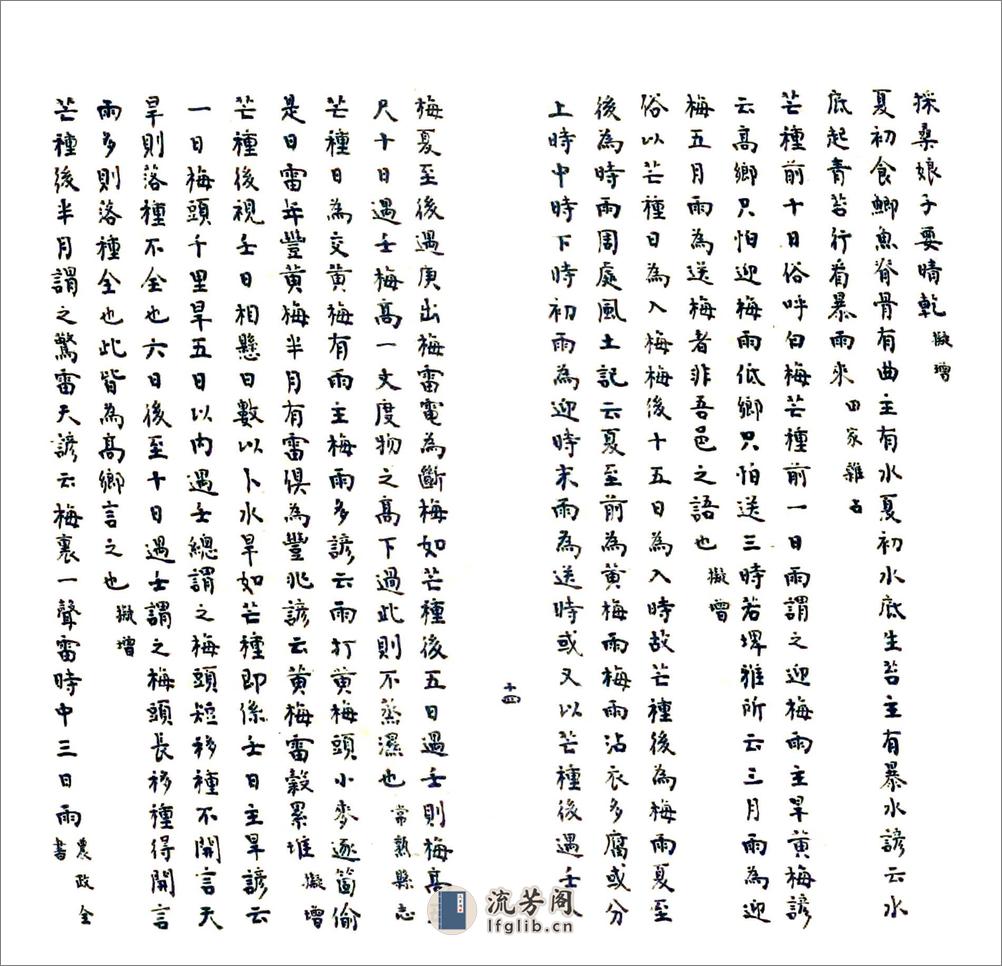 採桑娘子要晴乾擬增
夏初食鯽魚脊骨有曲主有水夏初水底生苔主有暴水諺云水
底起青苔行看暴雨來田家雜占
芒種前十日俗呼白梅芒種前一日雨謂之迎梅雨主旱黃梅諺
云高鄉只怕迎梅雨低鄉只怕送三時若埤雅所云三月雨為迎
梅五月雨為送梅者非吾邑之語也擬增
俗以芒種日為入梅梅後十五日為入時故芒種後為梅雨夏至
後為時雨周處風土記云夏至前為黃梅雨梅雨沾衣多腐或分
上時中時下時初雨為迎時末雨為送時或又以芒種後遇壬
十四
梅夏至後遇庚出梅雷電為斷梅如芒種後五日遇壬則梅高
尺十日遇壬梅高一丈度物之高下過此則不蒸濕也常熟縣志
芒種日為交黃梅有雨主梅雨多諺云雨打黃梅頭小麥逐箇偷
是日雷年豐黃梅半月有雷俱為豐兆諺云黃梅雷穀累堆擬增
芒種後視壬日相懸日數以卜水旱如芒種即係壬日主旱諺云
一日梅頭千里旱五日以內遇壬總謂之梅頭短移種不開言天
旱則落種不全也六日後至十日遇壬謂之梅頭長移種得開言
雨多則落種全也此皆為高鄉言之也擬增
芒種後半月謂之驚雷天諺云梅裏一聲雷時中三日雨農政全書
流芳阁
lfglib.cn